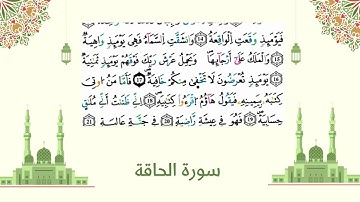 فَيَوْمَئِذٍ وَقَعَتِ الْوَاقِعَةُ 14 وَانشَقَّتِ السَّمَاءُ فَهِيَ يَوْمَئِذٍ وَاهِيَةٌ
15 وَالْمَلَكُ عَلَىٰ أَرْجَائِهَا وَيَحْمِلُ عَرْشَ رَبِّكَ فَوْقَهُمْ يَوْمَئِذٍ ثَمَٰنِيَةٌ
16 يَوْمَئِذٍ تُعْرَضُونَ لَا تَخْفَىٰ مِنكُمْ خَافِيَةٌ 17 فَأَمَّا مَنْ أُوتِيَ
كِتَٰبَهُ بِيَمِينِهِ فَيَقُولُ هَاؤُمُ اقْرَءُوا كِتَٰبِيَهْ 18 إِنِّي ظَنَنتُ أَنِّي مُلَٰقٍ
حِسَابِيَهْ 19 فَهُوَ فِي عِيشَةٍ رَّاضِيَةٍ 20 فِي جَنَّةٍ عَالِيَةٍ 21
سورة الحاقة